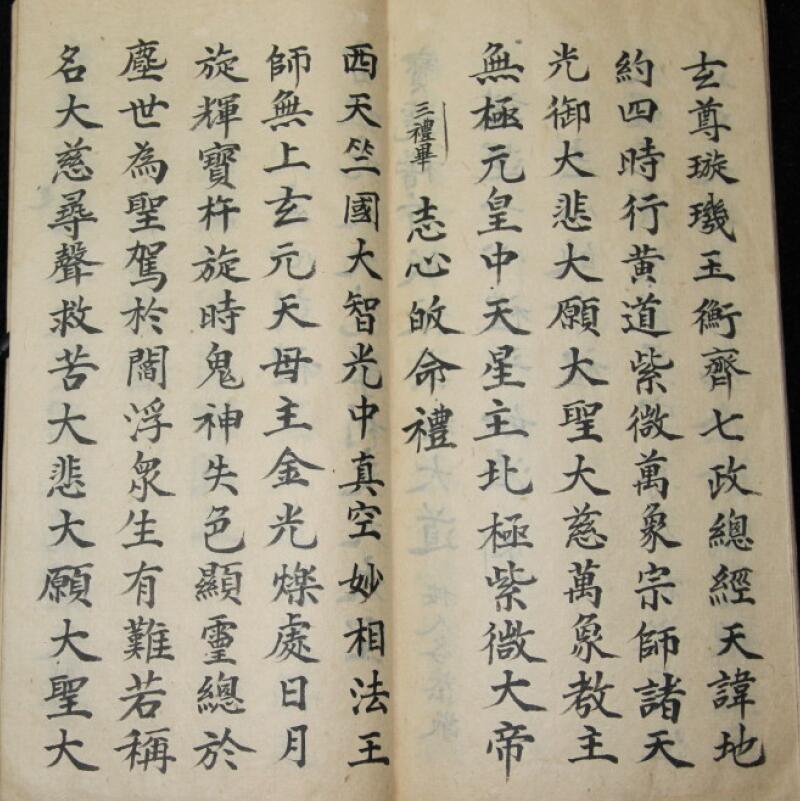 玄尊璇璣玉衡齊七政總經天諱地
約四時行黃道紫微萬象宗師諸天
光御大悲大願大聖大慈萬象教主
無極元皇中天星主北極紫微大帝
三禮畢 志心皈命禮
西天竺國大智光中真空妙相法王
師無上玄元天母主金光爍處日月
旋輝寶杵旋時鬼神失色顯靈總於
塵世為聖駕於閻浮眾生有難若稱
名大慈尋聲救苦大悲大願大聖大